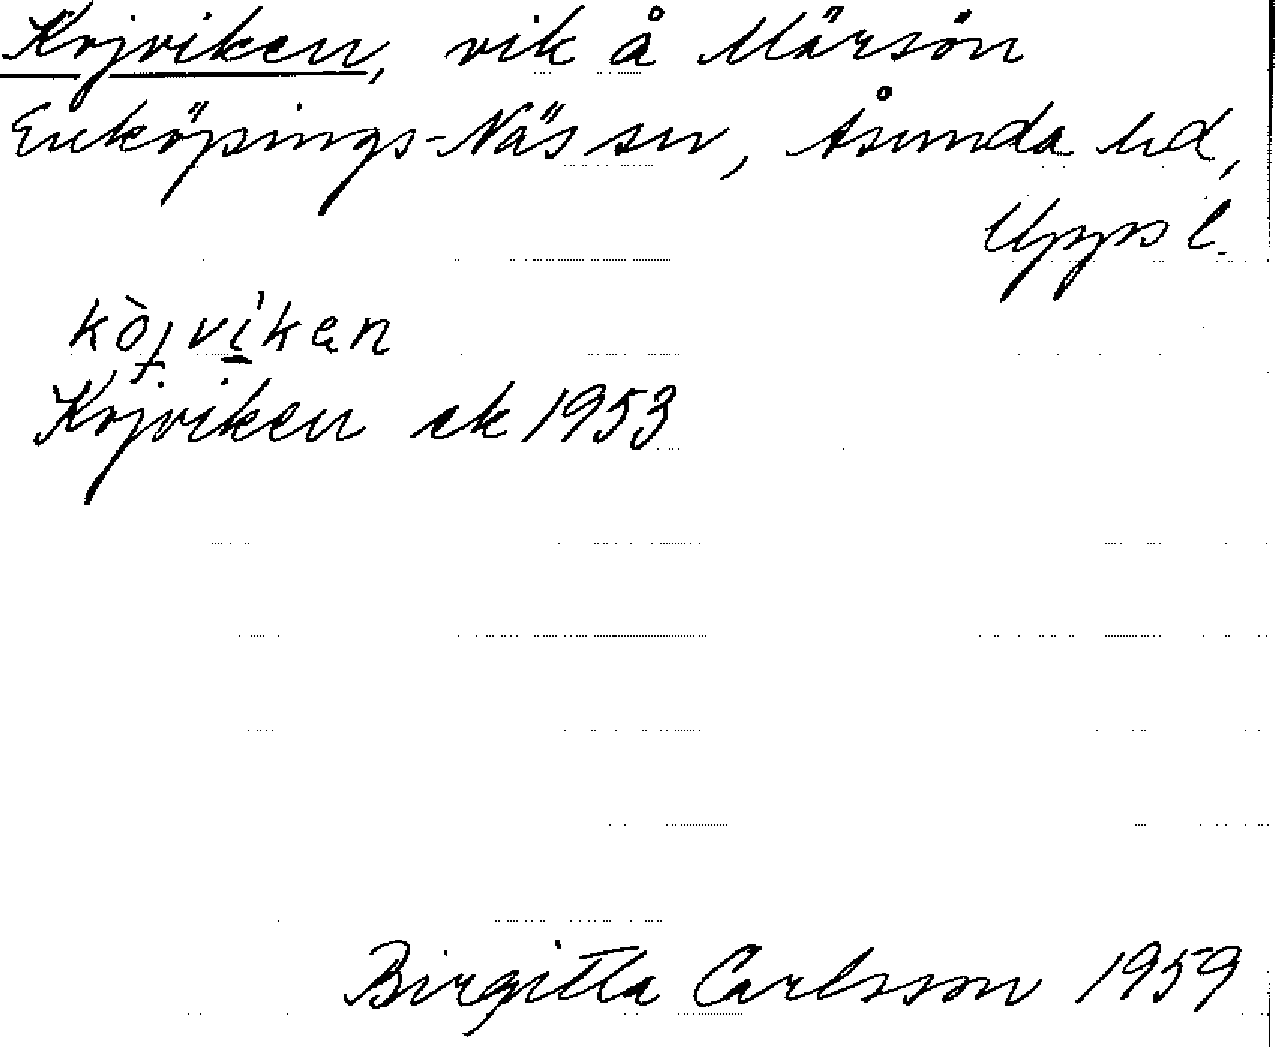 Kojviken, vik å Märsön
Enköpings-Näs sn, Åsunda hd,
Uppsl.
kòjvi̲'kan
Kojviken ek 1953
Birgitta Carlsson 1959